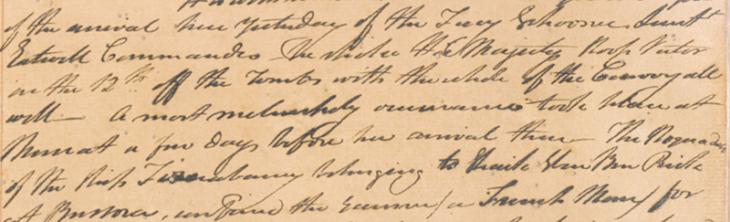 of the arrival here yesterday of the Fury Schooner Lieut
Eatwell Commander. She spoke H. Majestys Sloop Victor
on the 12th off the Tombs with the whole of the Convoy all
well — A most melancholy occurrence took place at
Muscat a few days before her arrival there — The Noquedar
of the Ship belonging to Shaik
at Bussora, the Gunner (a French Man) for